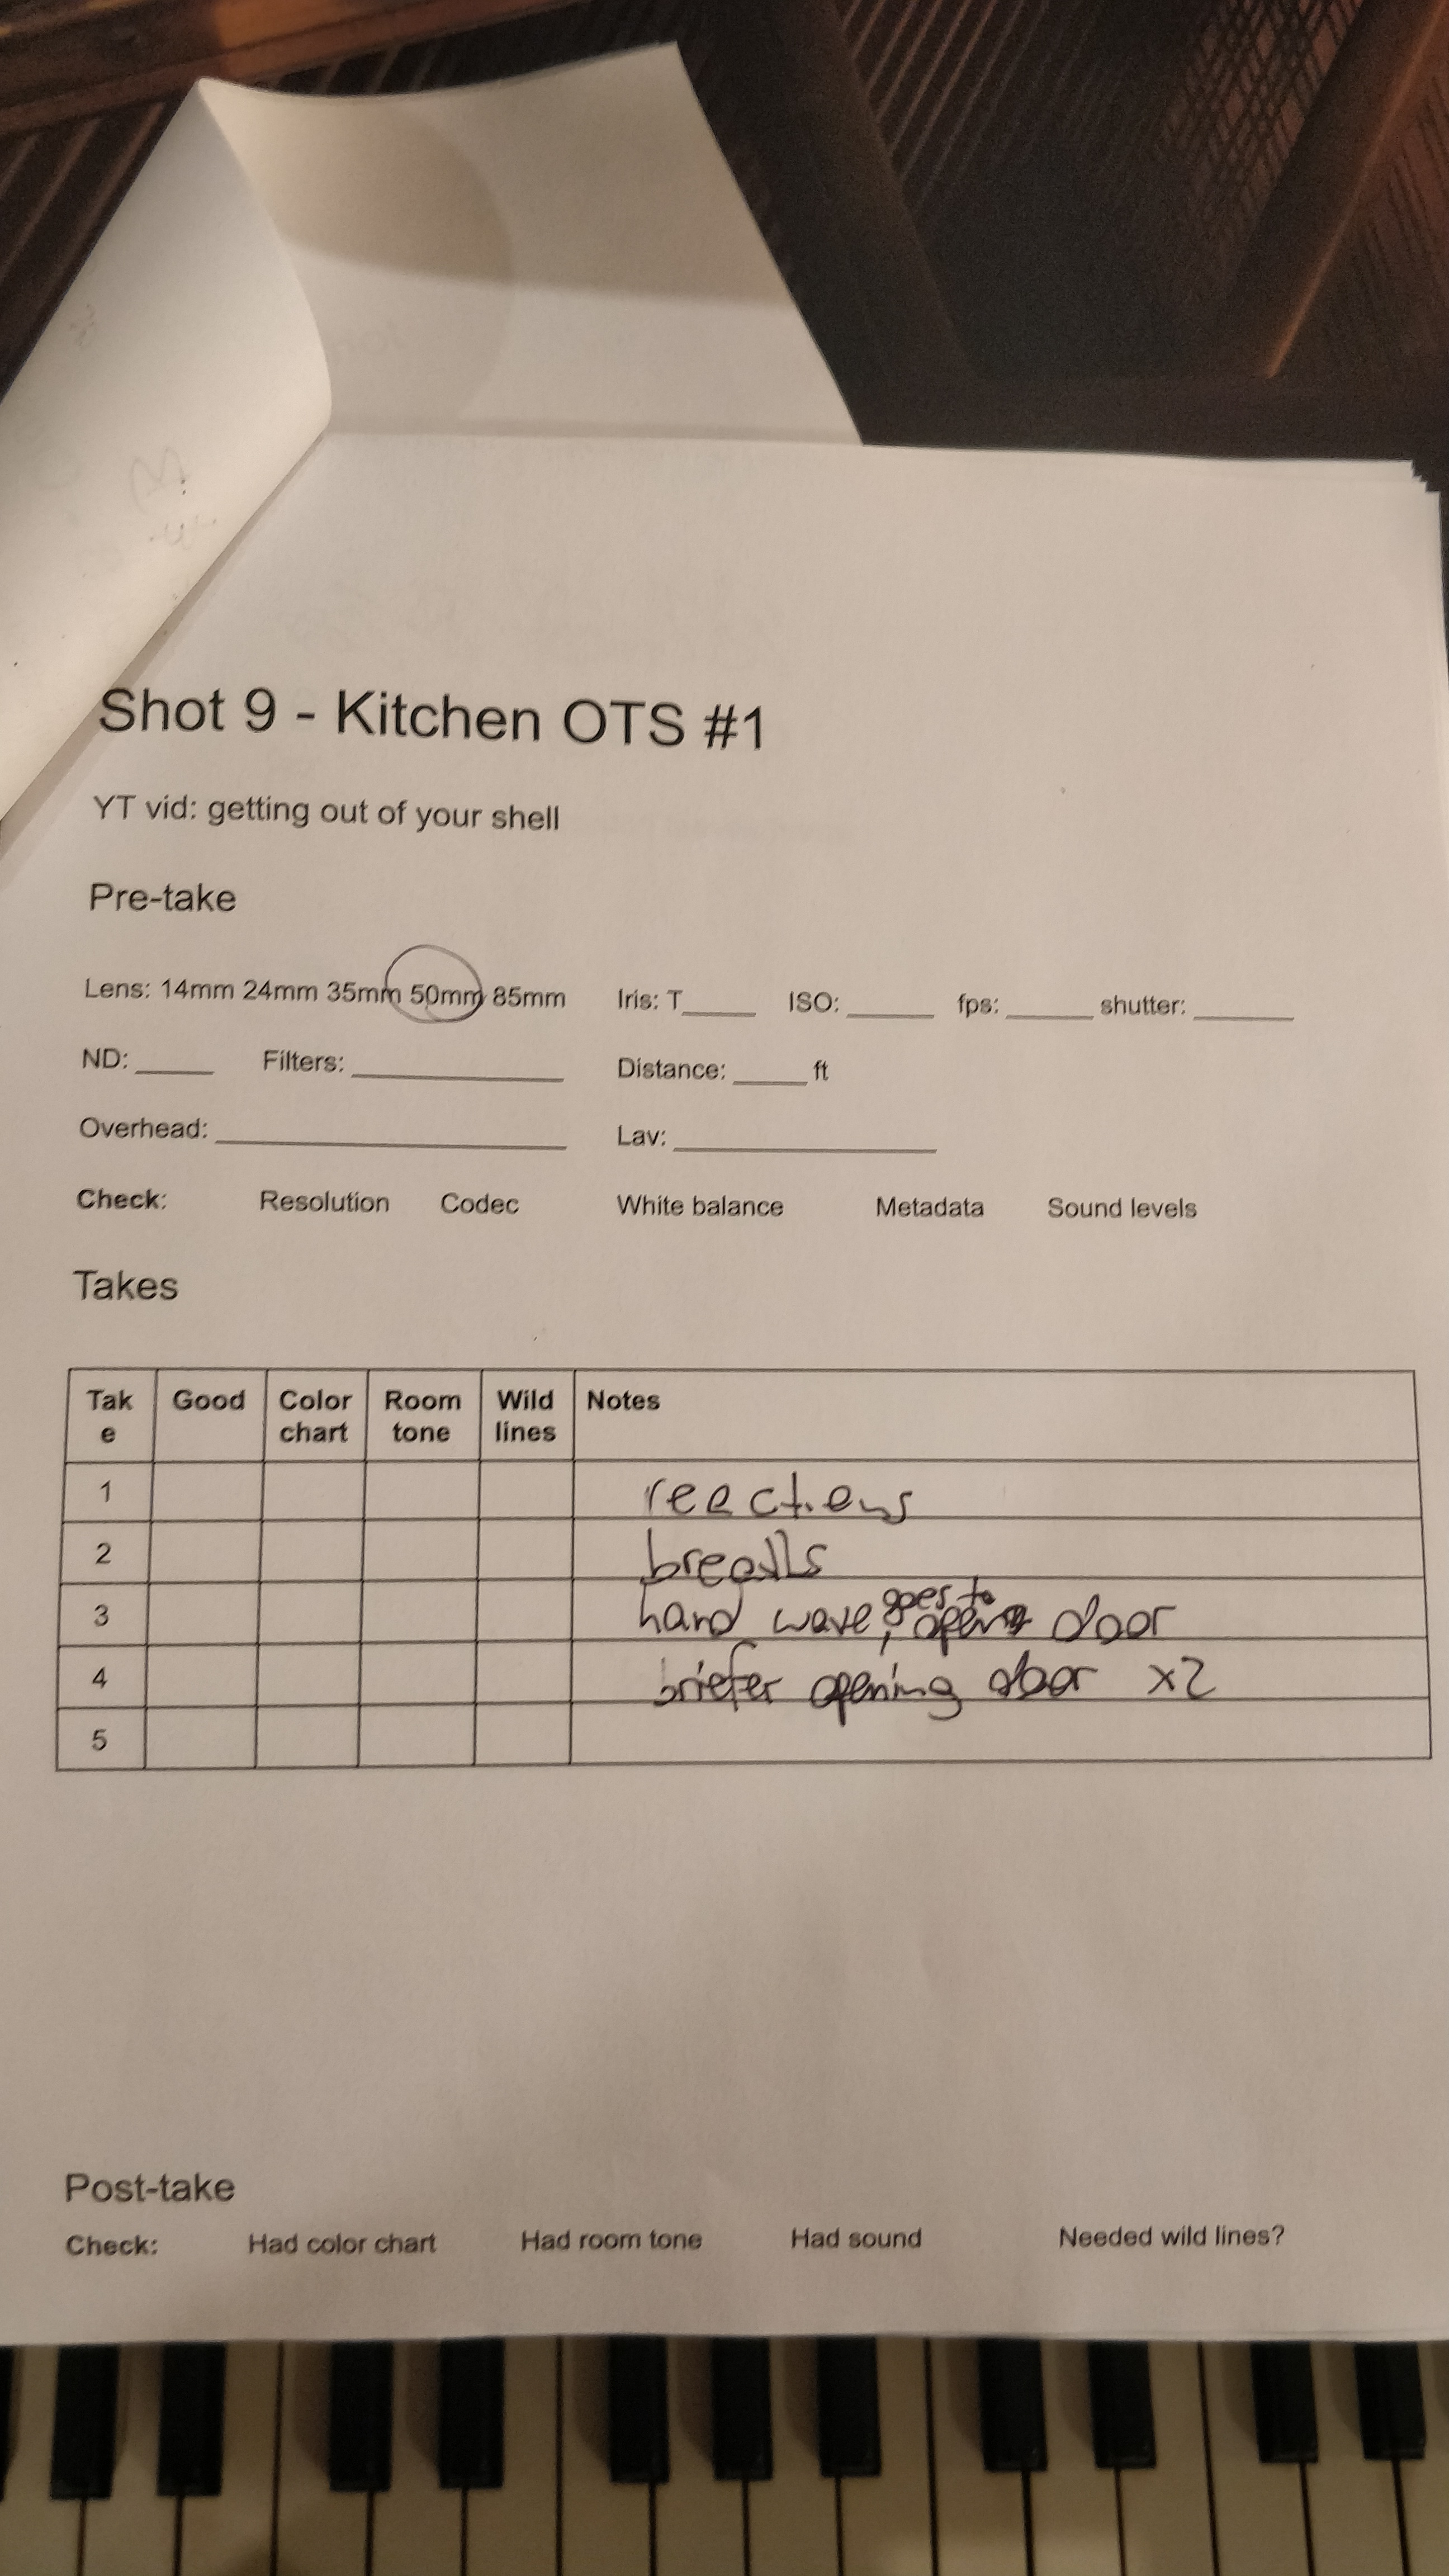 Shot 9 - Kitchen OTS #1
YT vid: getting out of your shell
Pre-take
Lens: 14mm 24mm 35mm 50mm 85mm Iris: T_____ ISO: ______ fps: ______ shutter: _______
ND: _____ Filters: ______________ Distance: _____ ft
Overhead: ________________________ Lav: __________________
Check: Resolution Codec White balance Metadata Sound levels
Takes
Tak Good Color Room Wild Notes
e chart tone lines
1 reactions
2
3 hand wave, goes to open door
4 briefer opening door x2
5
Post-take
Check: Had color chart Had room tone Had sound Needed wild lines?